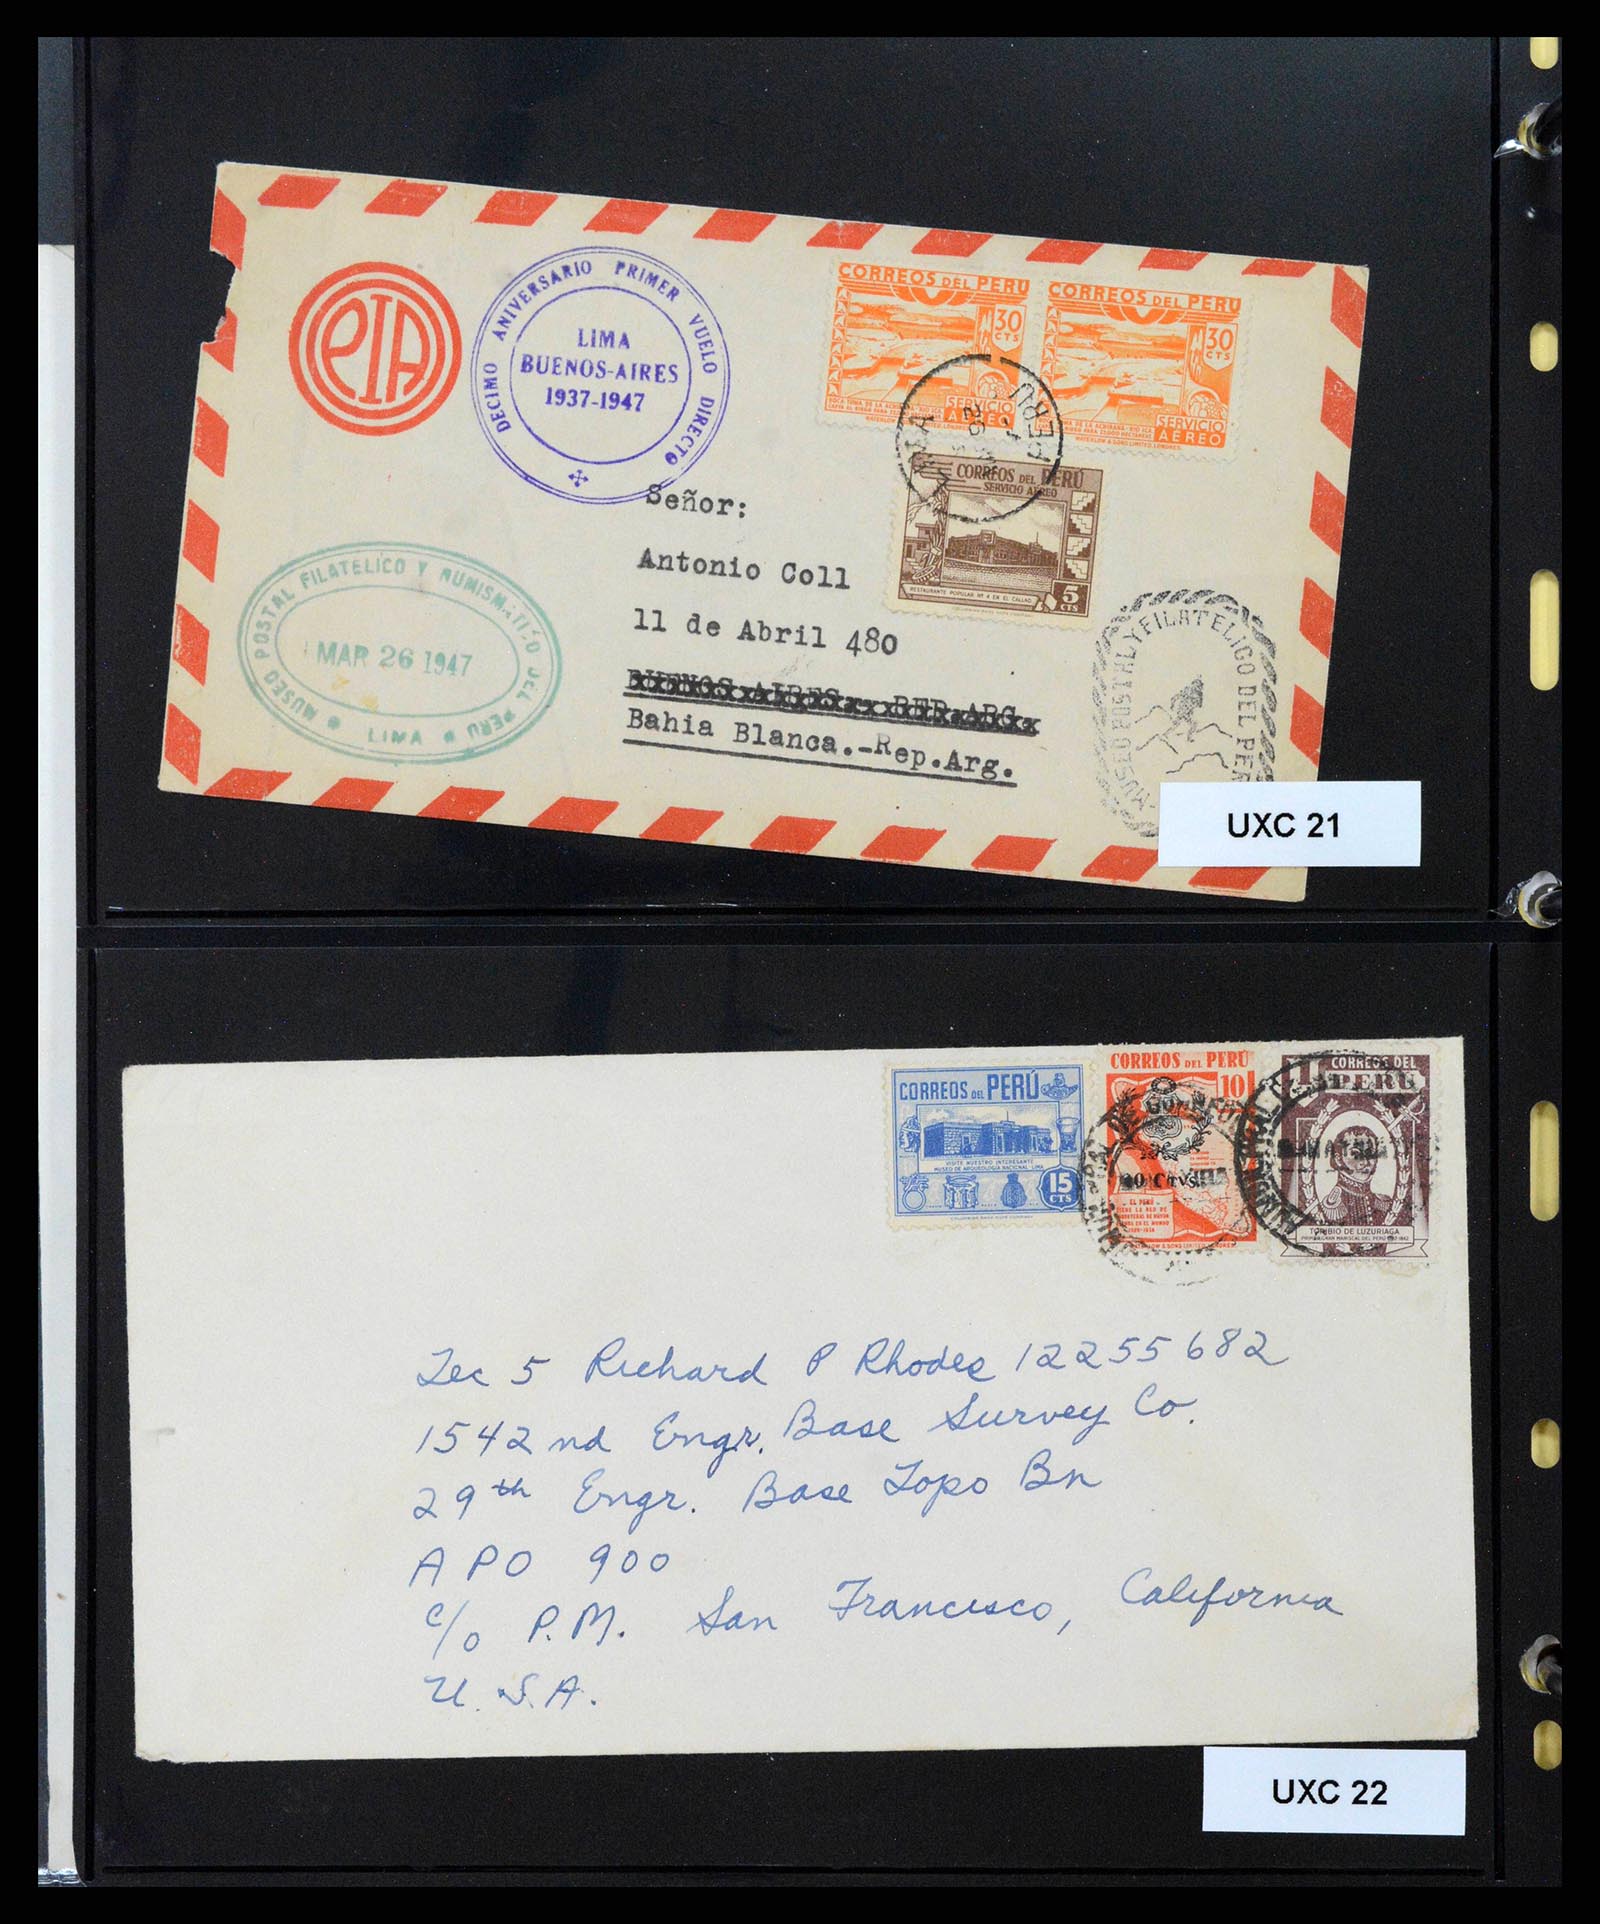 PIA
DECIMO ANIVERSARIO PRIMER VUELO DIRECTO
LIMA
BUENOS-AIRES
1937-1947
CORREOS DEL PERU
30
CTS
SERVICIO
AEREO
CORREOS DEL PERU
30
CTS
SERVICIO
AEREO
WATERLOW & SONS LIMITED, LONDRES.
LIMA
PERU
CORREOS DEL PERÚ
SERVICIO AEREO
RESTAURANTE POPULAR Nº 4 EN EL CALLAO
5
CTS
Señor:
Antonio Coll
11 de Abril 480
BUENOS AIRES.- REP.ARG.
Bahia Blanca.-Rep.Arg.
MUSEO POSTAL FILATELICO Y NUMISMATICO DEL PERU
MAR 26 1947
LIMA
MUSEO POSTAL Y FILATELICO DEL PER
UXC 21
CORREOS DEL PERÚ
VISITE NUESTRO INTERESANTE
MUSEO DE ARQUEOLOGIA NACIONAL - LIMA
15
CTS
CORREOS DEL PERÚ
10
EL PERÚ
CORREOS DEL
PERÚ
TORIBIO DE LUZURIAGA
Tec 5 Richard P Rhodes 12255682
1542 nd Engr. Base Survey Co.
29th Engr. Base Topo Bn
APO 900
c/o P.M. San Francisco, California
U.S.A.
UXC 22